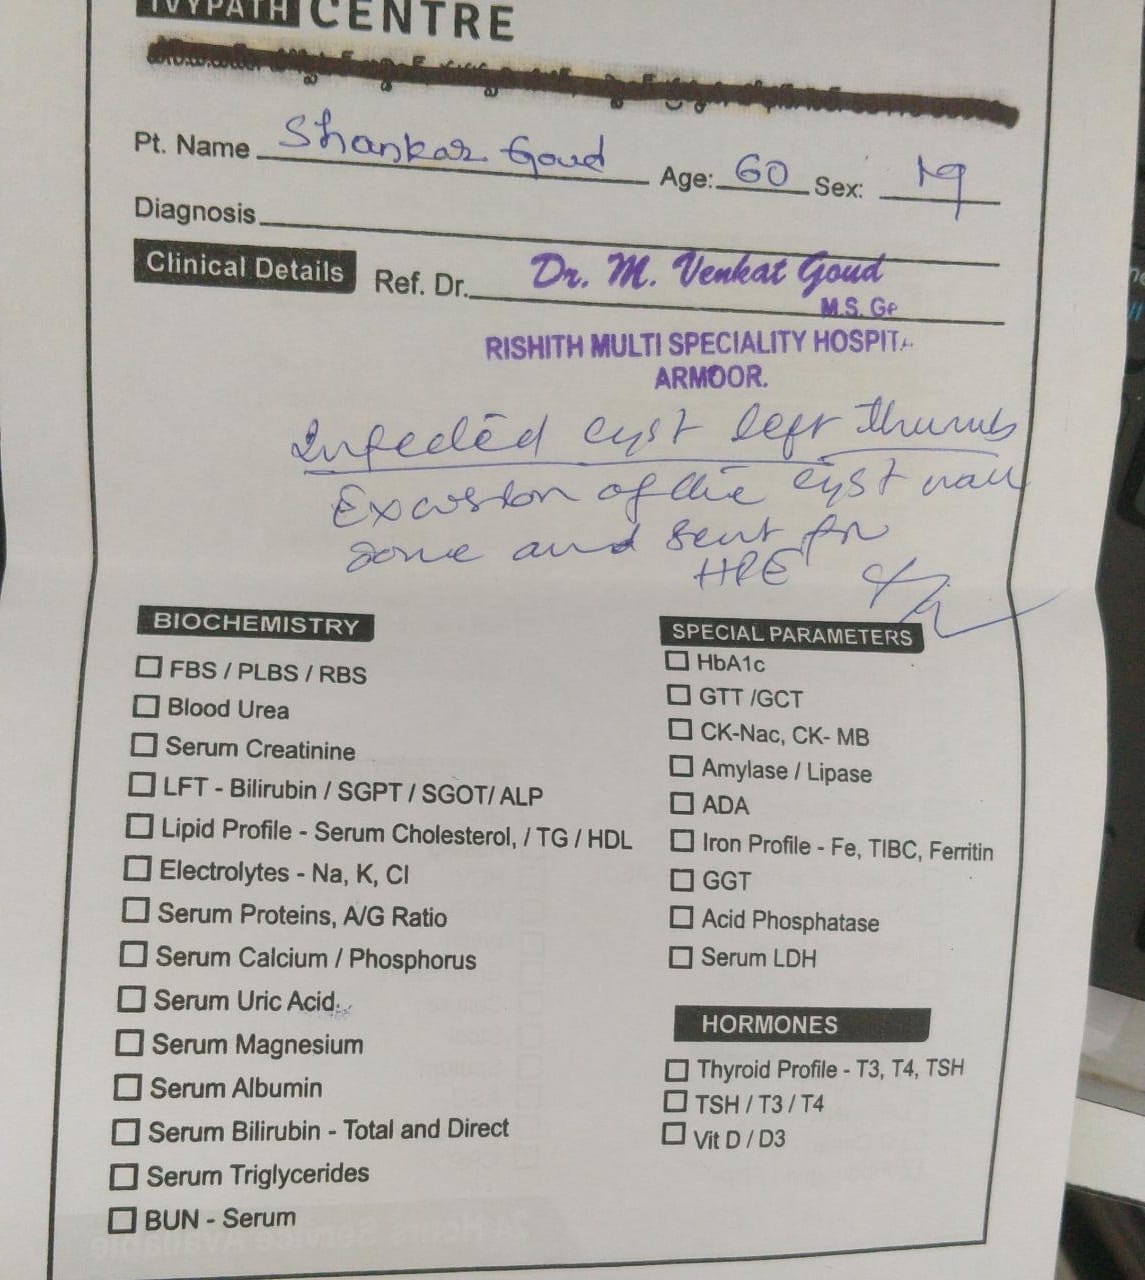 IVYPATH CENTRE
Pt. Name Shankar Goud Age: 60 Sex: M
Diagnosis
Clinical Details Ref. Dr. Dr. M. Venkat Goud
M.S. Ge
RISHITH MULTI SPECIALITY HOSPITA
ARMOOR.
Infected cyst left thumb
Excision of the cyst wall
done and sent for
HPE
BIOCHEMISTRY
FBS / PLBS / RBS
Blood Urea
Serum Creatinine
LFT - Bilirubin / SGPT / SGOT/ ALP
Lipid Profile - Serum Cholesterol, / TG / HDL
Electrolytes - Na, K, Cl
Serum Proteins, A/G Ratio
Serum Calcium / Phosphorus
Serum Uric Acid.
Serum Magnesium
Serum Albumin
Serum Bilirubin - Total and Direct
Serum Triglycerides
BUN - Serum
SPECIAL PARAMETERS
HbA1c
GTT /GCT
CK-Nac, CK- MB
Amylase / Lipase
ADA
Iron Profile - Fe, TIBC, Ferritin
GGT
Acid Phosphatase
Serum LDH
HORMONES
Thyroid Profile - T3, T4, TSH
TSH / T3 / T4
Vit D / D3